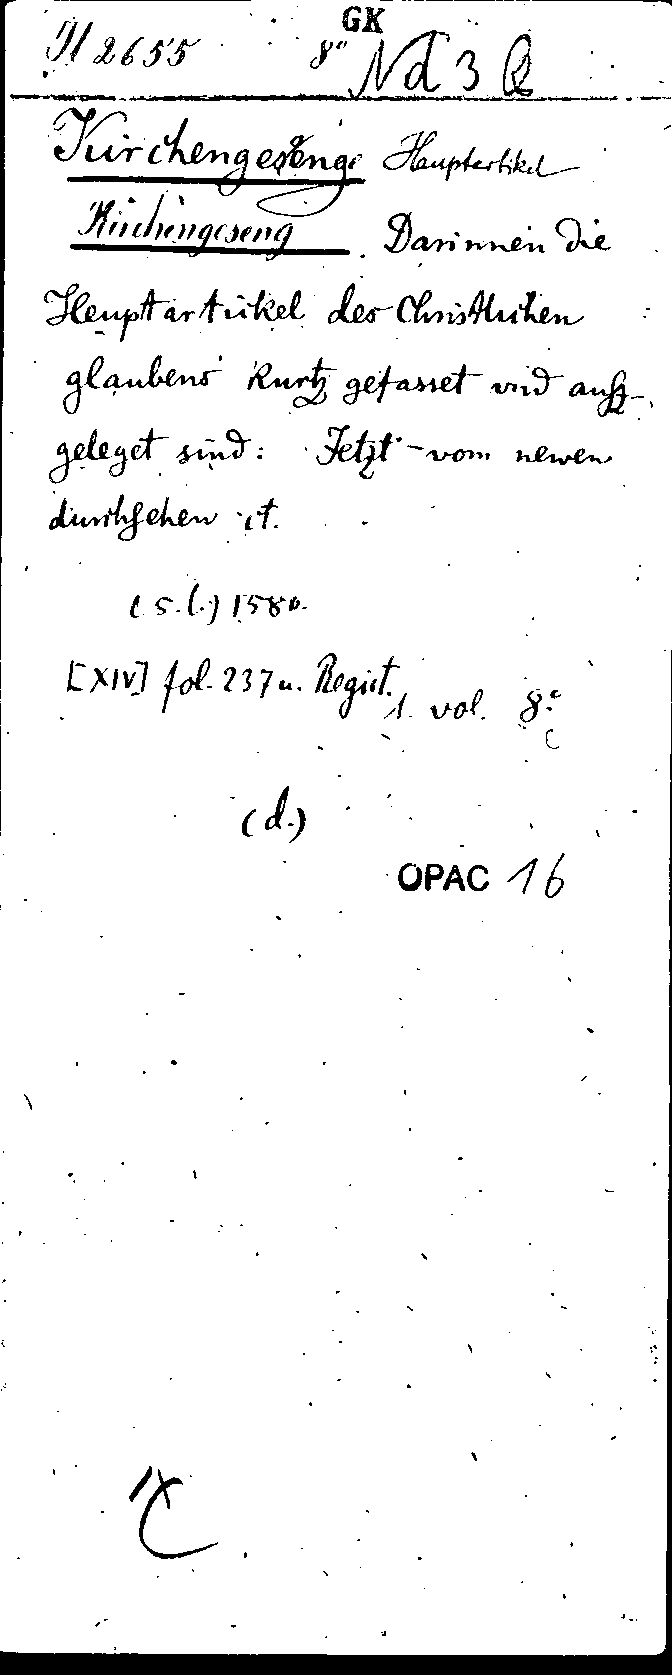 GK
H 2655 8° Nd 3 Q
Kirchengesenge Hauptartikel
Kirchengeseng. Darinnen die
Heuptartickel des Christlichen
glaubens kurtz gefasset vnd ausz-
geleget sind: Jetzt vom newen
durchsehen etc.
(s.l.) 1580.
[XIV] fol. 237 u. Regist.
1. vol. 8°
(d.)
OPAC 16